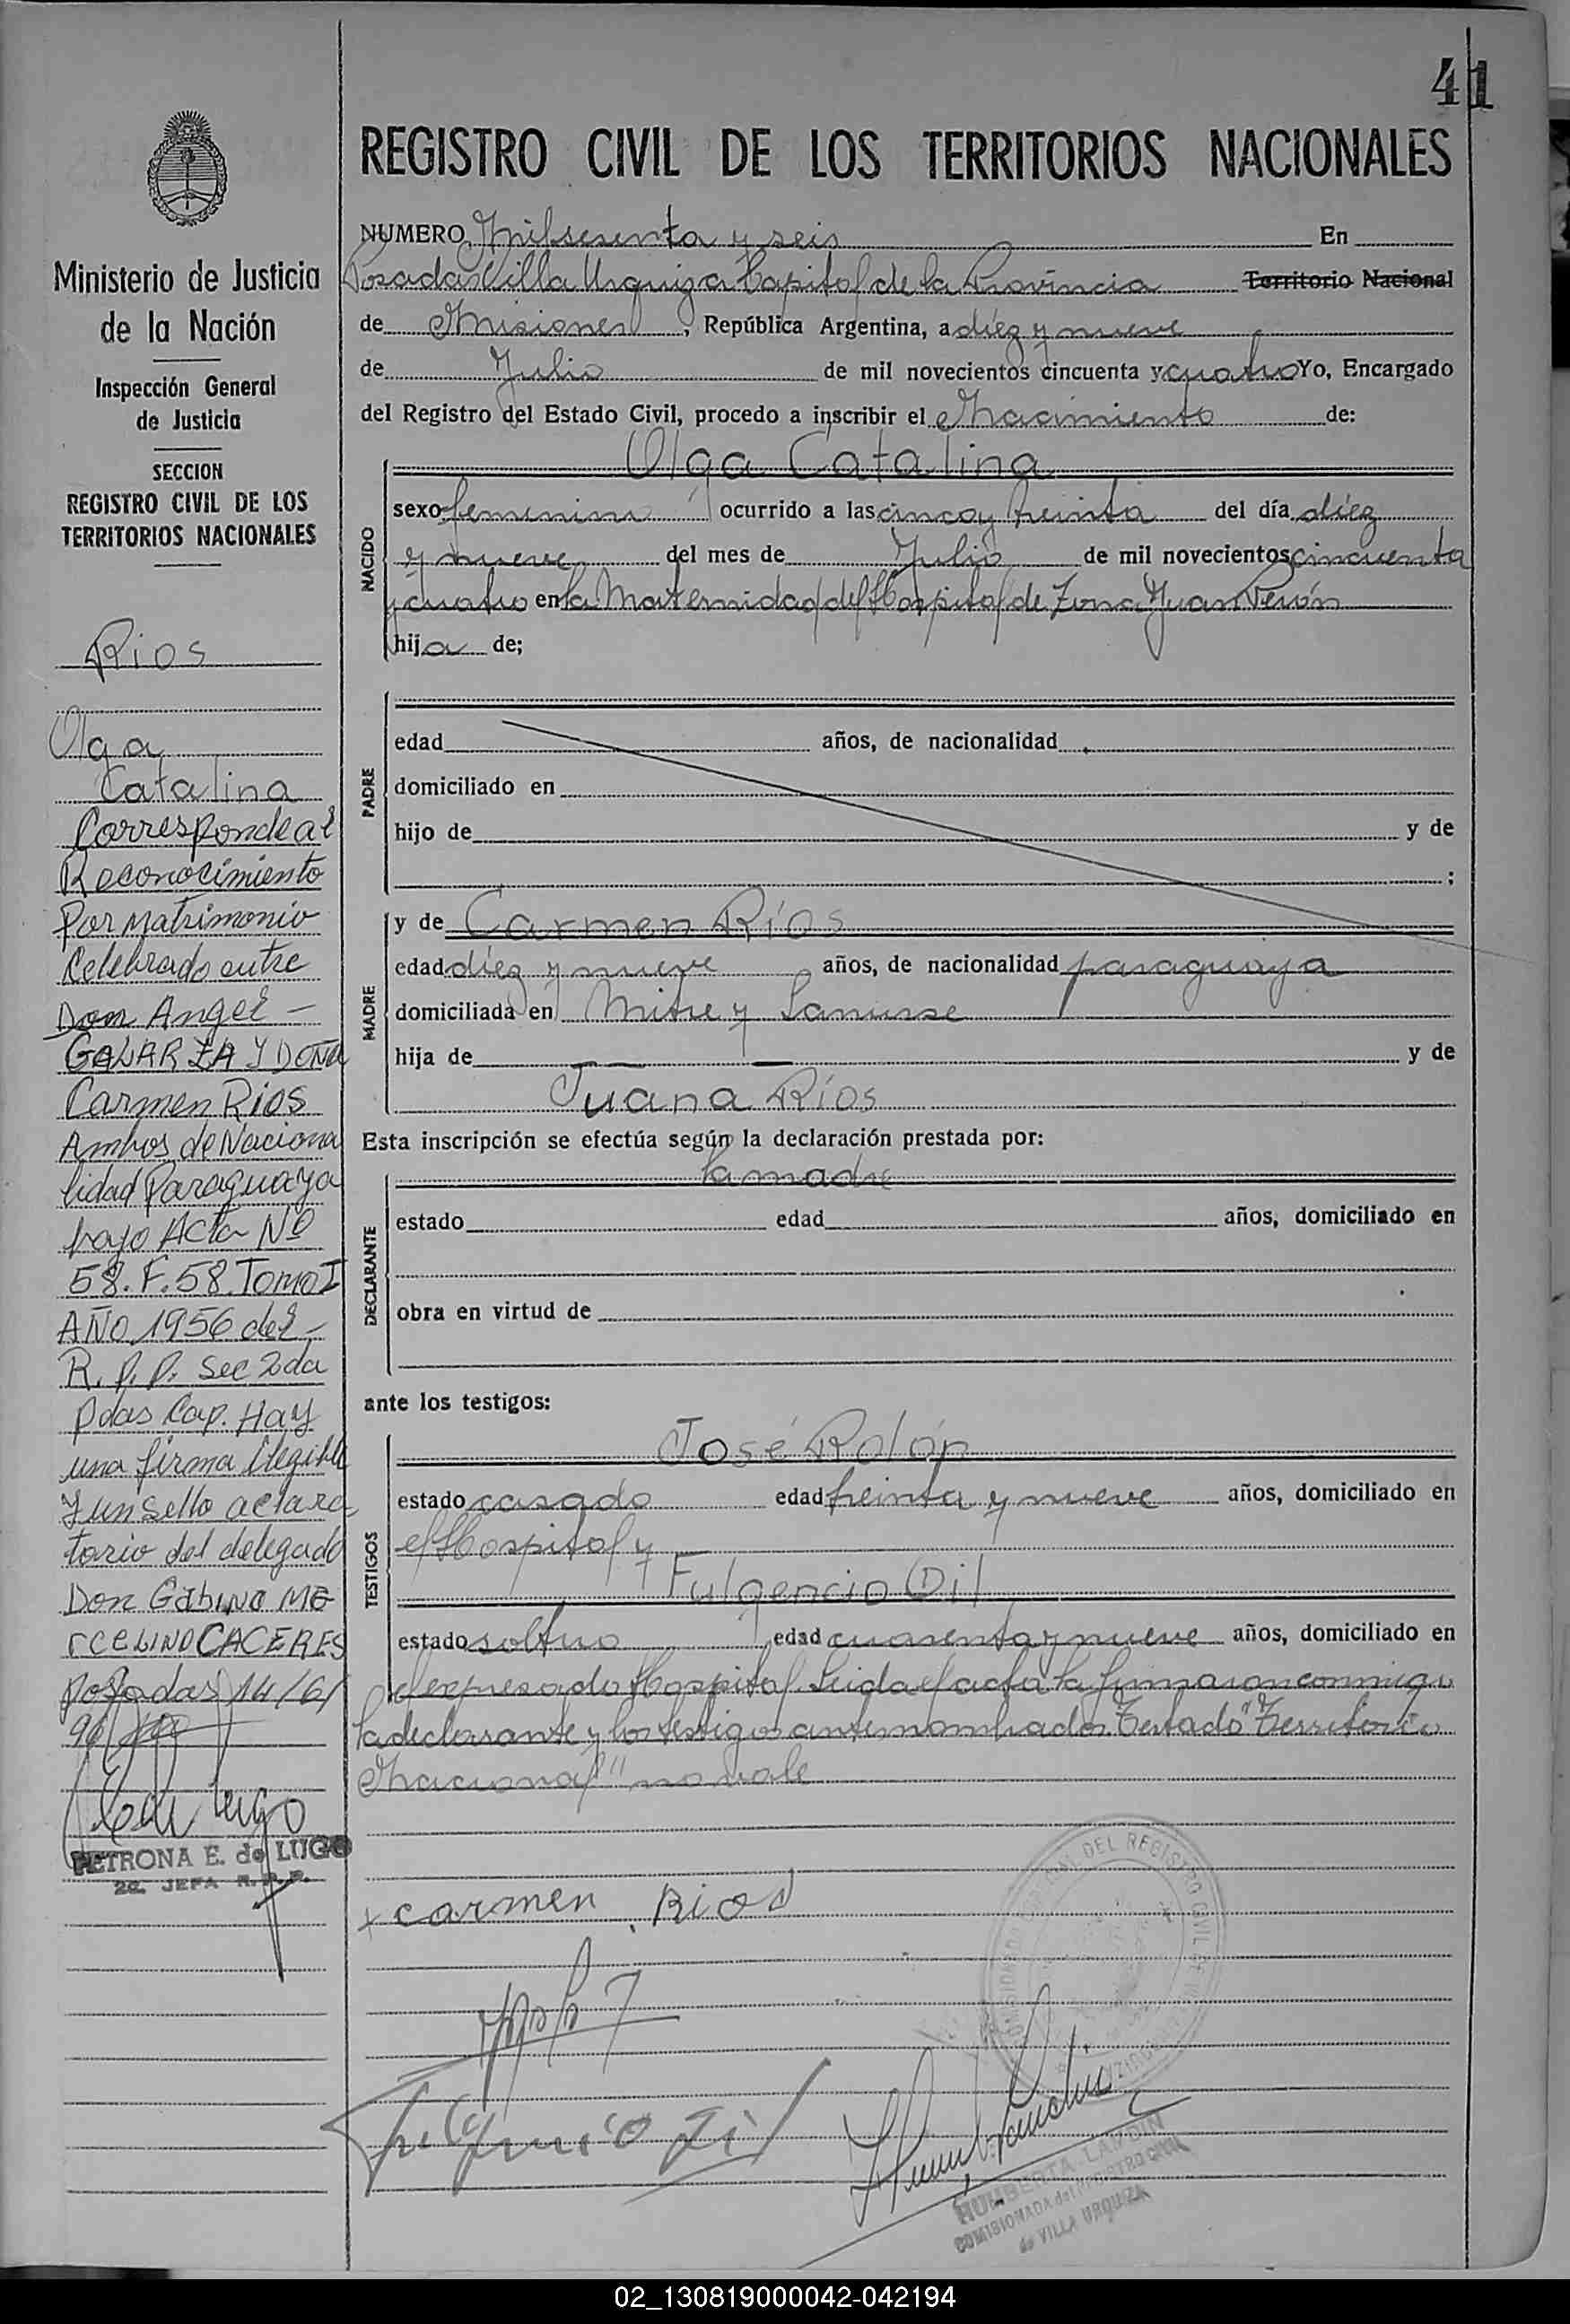 41
REGISTRO CIVIL DE LOS TERRITORIOS NACIONALES
Ministerio de Justicia
de la Nación
Inspección General
de Justicia
SECCION
REGISTRO CIVIL DE LOS
TERRITORIOS NACIONALES
Rios
Olga
Catalina
Corresponde al
Reconocimiento
Por Matrimonio
Celebrado entre
Don Angel -
GALARZA Y DOÑA
Carmen Rios
Ambos de Naciona
lidad Paraguaya
bajo Acta Nº
58. F. 58. Tomo I
AÑO 1956 del -
R. P. P. Sec 2da
Pdas Cap. Hay
una firma ilegible
Y un sello aclara
torio del delegado
Don Gabino MA
rceLINO CACERES
Posadas 14/6/
96
PETRONA E. de LUGO
2a. JEFA R. P. P.
NUMERO mil sesenta y seis En
Posadas Villa Urquiza Capital de la Provincia Territorio Nacional
de Misiones, República Argentina, a diez y nueve
de Julio de mil novecientos cincuenta y cuatro Yo, Encargado
del Registro del Estado Civil, procedo a inscribir el Nacimiento de:
NACIDO
Olga Catalina
sexo femenino ocurrido a las cinco y treinta del día diez
y nueve del mes de Julio de mil novecientos cincuenta
y cuatro en la Maternidad del Hospital de Zona Juan Perón
hija de;
PADRE
edad años, de nacionalidad
domiciliado en
hijo de y de
;
MADRE
y de Carmen Ríos
edad diez y nueve años, de nacionalidad paraguaya
domiciliada en Mitre y Lanusse
hija de — — y de
Juana Ríos
Esta inscripción se efectúa según la declaración prestada por:
DECLARANTE
la madre
estado edad años, domiciliado en
obra en virtud de
ante los testigos:
TESTIGOS
José Rolón
estado casado edad treinta y nueve años, domiciliado en
el Hospital y
Fulgencio Dil
estado soltero edad cuarenta y nueve años, domiciliado en
el expresado Hospital. Leida el acta la firmaron conmigo
la declarante y los testigos antes nombrados. Testado "Territorio
Nacional" no vale
x carmen Rios
DEL REGISTRO CIVIL
HUMBERTA LANDIN
COMISIONADA del REGISTRO CIVIL
de VILLA URQUIZA
02_130819000042-042194